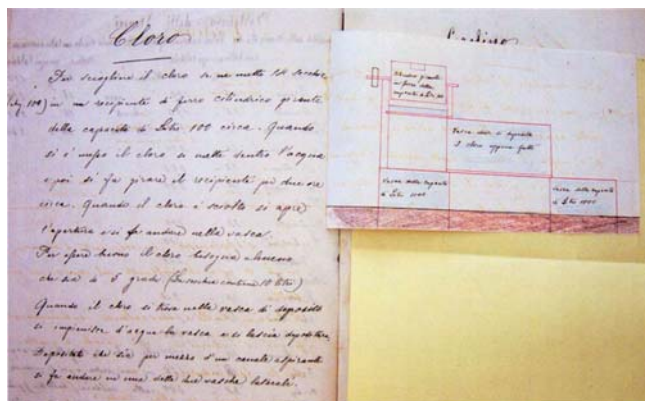 Cloro
Per sciogliere il cloro se ne mette 14 secchie
in un recipiente di ferro cilindrico girante
della capacità di Litri 100 circa. Quando
si è messo il cloro si mette dentro l'acqua
e poi si fa girare il recipiente per due ore
circa. Quando il cloro è sciolto si apre
l'apertura e si fa andare nella vasca.
Per essere buono il cloro bisogna almeno
che sia di 5 gradi (La secchia contiene 10 litri)
Quando il cloro si trova nella vasca di deposito
si d'acqua la vasca e si lascia depositare.
Depositato che sia per mezzo d'un canale aspirante
si fa andare in una delle due vasche laterali.
Cilindro girante
in ferro della
capacità di
Vasca dove si deposita
il cloro appena fatto
Vasca della capacità
di Litri
Vasca della capacità
di Litri